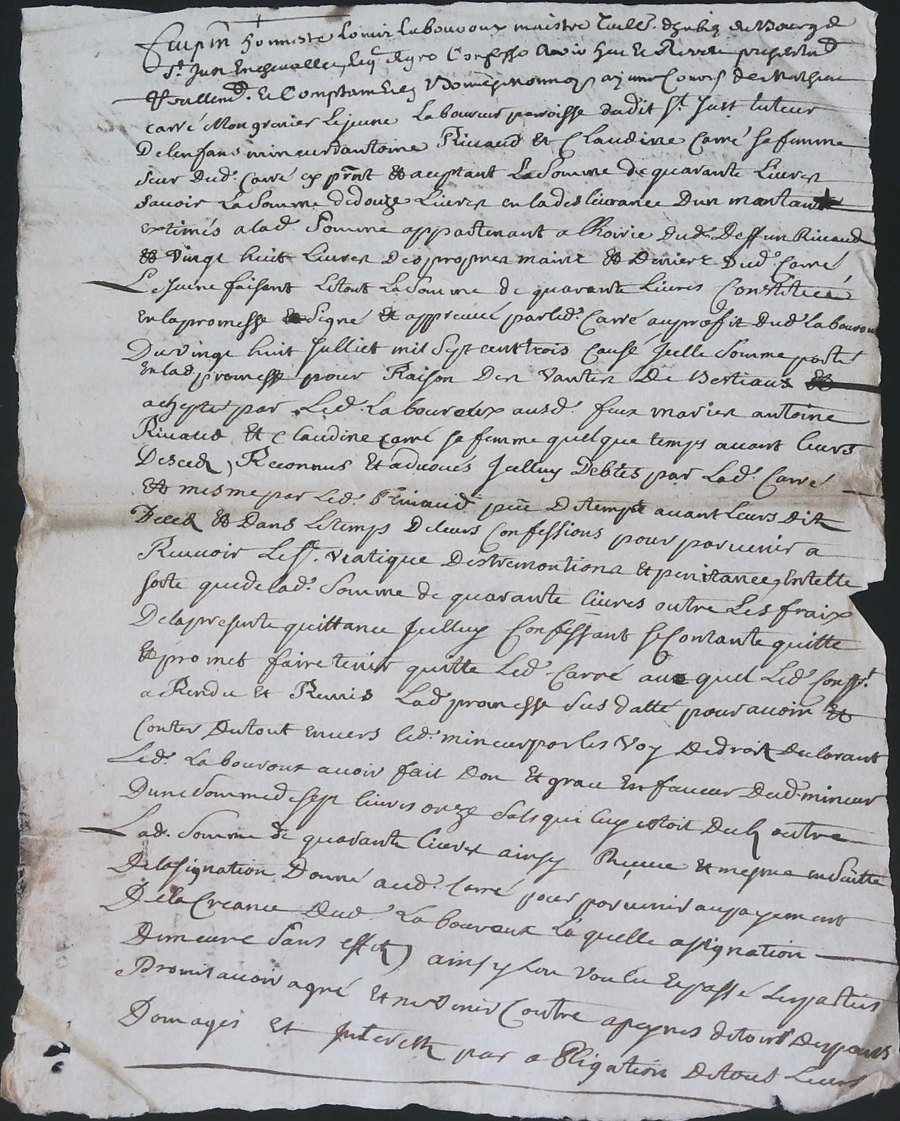 honneste Louis Laboureux maistre du Bourg de
St Just Enchevallet Leq. Confesse avoir heu et Receu
Et Comptant de Mathieu
carré Mongrenier Lejeune Laboureur paroisse dudit St Just tuteur
Delenfans mineurs dantoine Rivaud et Claudine Carré sa femme
seur dud. Carré cy pnt et aceptant La Somme de quarante Livres
savoir La Somme dedouze Livres en la deslivrance dun mantaut
extimés a lad. Somme appartenant a lhoirie dud. Deffun Rivaud
et vingt huit Livres des propres mains et Deniers dud. Carré
Lejeune faisant Letout La Somme de quarante Livres Constituée
en la promesse et Signé et apprevée parled. Carré au profit dud. Laboureux
Du vingt huit Julliet mil Sept cent trois causé Jcelle Somme porté
en lad. promesse pour Raison Des Vantes De Bestiaux et
achepté par Led. Laboureux ausd. feux mariés antoine
Rivaud et Claudine carré sa femme quelque temps avant leurs
Desced, Reconnus et advoués Jcelluy Debtes par Lad. Carré
et mesme par Led. Rivaud peu De temps avant leurs dit
Deced et Dans Letemps De leurs Confessions pour parvenir a
Recevoir Le St. Viatique et penistance, Entelle
sorte que de lad. Somme de quarante livres outre Les fraix
De la presente quittance Jcelluy Confessant se contante quitte
et promet faire tenir quitte Led. Carré au quel Led. Confst.
a Rendu et Remis Lad. promesse sus datté pour avoir et
conter Dutout envers led. mineur par les Voy De droit declarant
Led. Laboureux avoir fait Don et grace en faveur dud. mineur
Dune Somme de sept livres onze Sols qui luy estoit deub outre
Lad. Somme de quarante livres ainsy Receue et mesme en suitte
De lasignation Donné aud. Carré pour parvenir au payement
De la Creance Dud. Laboureux Laquelle asignation
Dimeure Sans effet ainsy Lon voulu Et passé Les parties
Promis avoir agré Et ne Venir Contre a peynes de tous Despans
Domages et Interests par obligation De tous Leurs